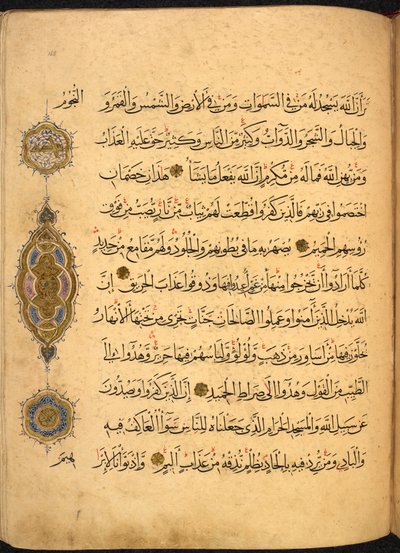 تر أن الله يسجد له من في السموات ومن في الأرض والشمس والقمر و النجوم
والجبال والشجر والدواب وكثير من الناس وكثير حق عليه العذاب
ومن يهن الله فما له من مكرم إن الله يفعل ما يشاء هذان خصمان
اختصموا في ربهم فالذين كفروا قطعت لهم ثياب من نار يصب من فوق
رؤسهم الحميم يصهر به ما في بطونهم والجلود ولهم مقامع من حديد
كلما أرادوا أن يخرجوا منها من غم أعيدوا فيها وذوقوا عذاب الحريق إن
الله يدخل الذين آمنوا وعملوا الصالحات جنات تجري من تحتها الأنهار
يحلون فيها من أساور من ذهب ولؤلؤا ولباسهم فيها حرير وهدوا إلى
الطيب من القول وهدوا إلى صراط الحميد إن الذين كفروا ويصدون
عن سبيل الله والمسجد الحرام الذي جعلناه للناس سواء العاكف فيه
والبادي ومن يرد فيه بإلحاد بظلم نذقه من عذاب أليم وإذ بوأنا لإبرا هيم